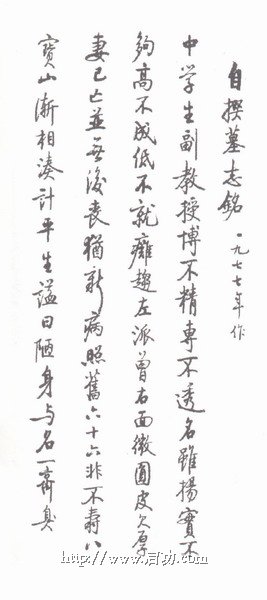 自撰墓志銘 一九七七年作
中学生副教授博不精专不透名雖揚實不
夠高不成低不就癱趨左派曾右面微圓皮欠厚
妻已亡並無後喪猶新病照舊六十六非不壽八
寶山漸相湊計平生謚曰陋身与名一齊臭
http://www.启功.com/